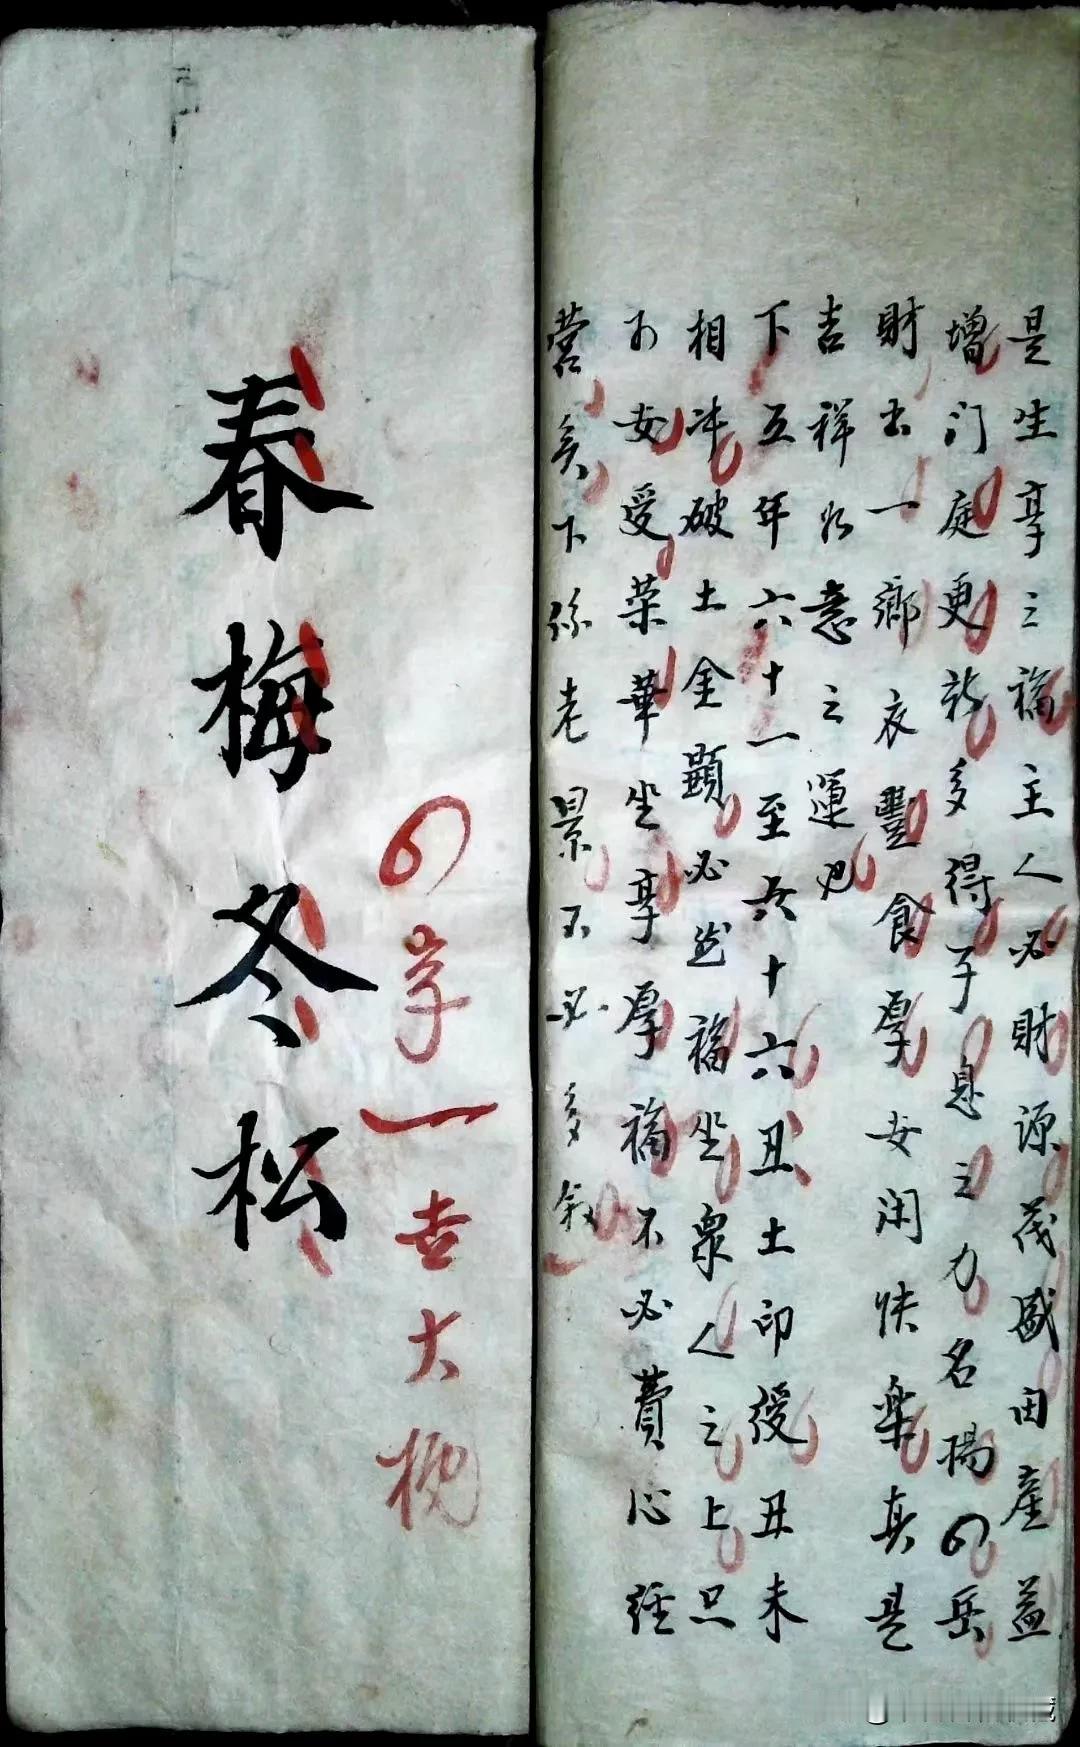 是生享三福主人必財源茂盛田產益
增门庭更新多得子息之力名揚四岳
財出一鄉衣豐食厚女闲快樂真是
吉祥如意之運也
下互年六十一至六十六丑土印绶丑未
相冲破土金顯必然福坐衆人之上只
女受荣華坐享厚福不必費心经
营矣下孫老景不必多叙
春梅冬松
四字一言大概